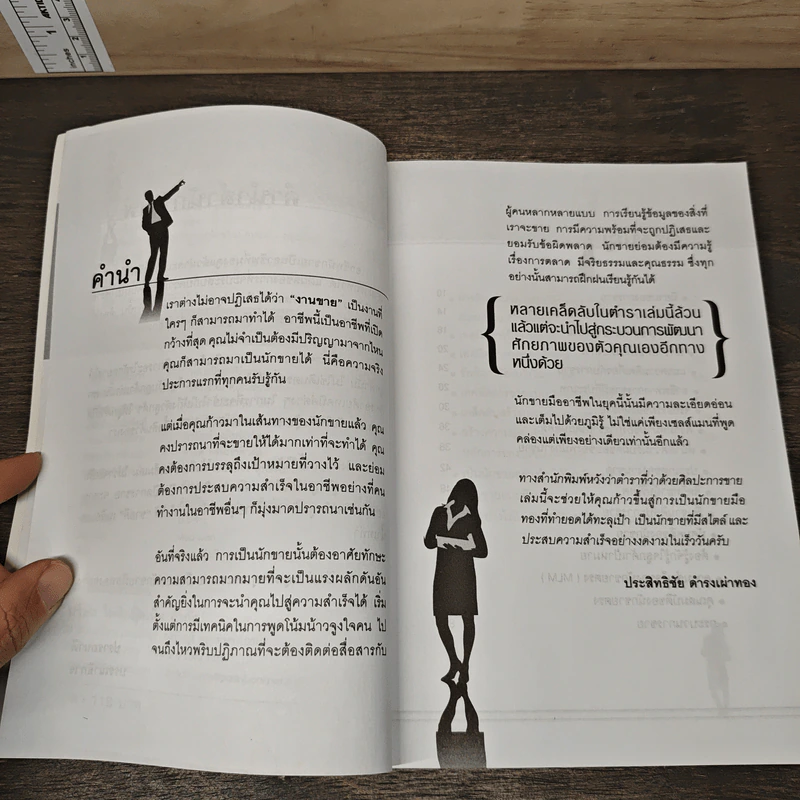 คำนำ
เราต่างไม่อาจปฏิเสธได้ว่า "งานขาย" เป็นงานที่
ใครๆ ก็สามารถมาทำได้ อาชีพนี้เป็นอาชีพที่เปิด
กว้างที่สุด คุณไม่จำเป็นต้องมีปริญญามาจากไหน
คุณก็สามารถมาเป็นนักขายได้ นี่คือความจริง
ประการแรกที่ทุกคนรับรู้กัน
แต่เมื่อคุณก้าวมาในเส้นทางของนักขายแล้ว คุณ
คงปรารถนาที่จะขายให้ได้มากเท่าที่จะทำได้ คุณ
คงต้องการบรรลุถึงเป้าหมายที่วางไว้ และย่อม
ต้องการประสบความสำเร็จในอาชีพอย่างที่คน
ทำงานในอาชีพอื่นๆ ก็มุ่งมาดปรารถนาเช่นกัน
อันที่จริงแล้ว การเป็นนักขายนั้นต้องอาศัยทักษะ
ความสามารถมากมายที่จะเป็นแรงผลักดันอัน
สำคัญยิ่งในการจะนำคุณไปสู่ความสำเร็จได้ เริ่ม
ตั้งแต่การมีเทคนิคในการพูดโน้มน้าวจูงใจคน ไป
จนถึงไหวพริบปฏิภาณที่จะต้องติดต่อสื่อสารกับ
ผู้คนหลากหลายแบบ การเรียนรู้ข้อมูลของสิ่งที่
เราจะขาย การมีความพร้อมที่จะถูกปฏิเสธและ
ยอมรับข้อผิดพลาด นักขายย่อมต้องมีความรู้
เรื่องการตลาด มีจริยธรรมและคุณธรรม ซึ่งทุก
อย่างนั้นสามารถฝึกฝนเรียนรู้กันได้
หลายเคล็ดลับในตำราเล่มนี้ล้วน
แล้วแต่จะนำไปสู่กระบวนการพัฒนา
ศักยภาพของตัวคุณเองอีกทาง
หนึ่งด้วย
นักขายมืออาชีพในยุคนี้นั้นมีความละเอียดอ่อน
และเต็มไปด้วยภูมิรู้ ไม่ใช่แค่เพียงเซลส์แมนที่พูด
คล่องแต่เพียงอย่างเดียวเท่านั้นอีกแล้ว
ทางสำนักพิมพ์หวังว่าตำราที่ว่าด้วยศิลปะการขาย
เล่มนี้จะช่วยให้คุณก้าวขึ้นสู่การเป็นนักขายมือ
ทองที่ทำยอดได้ทะลุเป้า เป็นนักขายที่มีสไตล์ และ
ประสบความสำเร็จอย่างงดงามในเร็ววันครับ
ประสิทธิชัย ดำรงเผ่าทอง